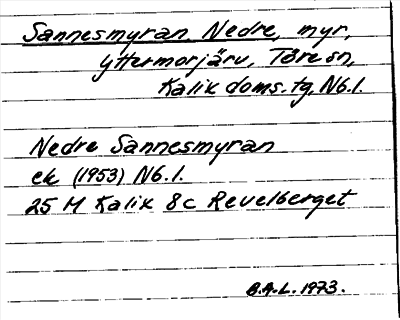 Sannesmyran, Nedre, myr,
Yttermorjärv, Töre sn,
Kalix doms.tg, Nb.l.
Nedre Sannesmyran
ek (1953) Nb.l.
25 M Kalix 8c Revelberget
B.A.L. 1973.